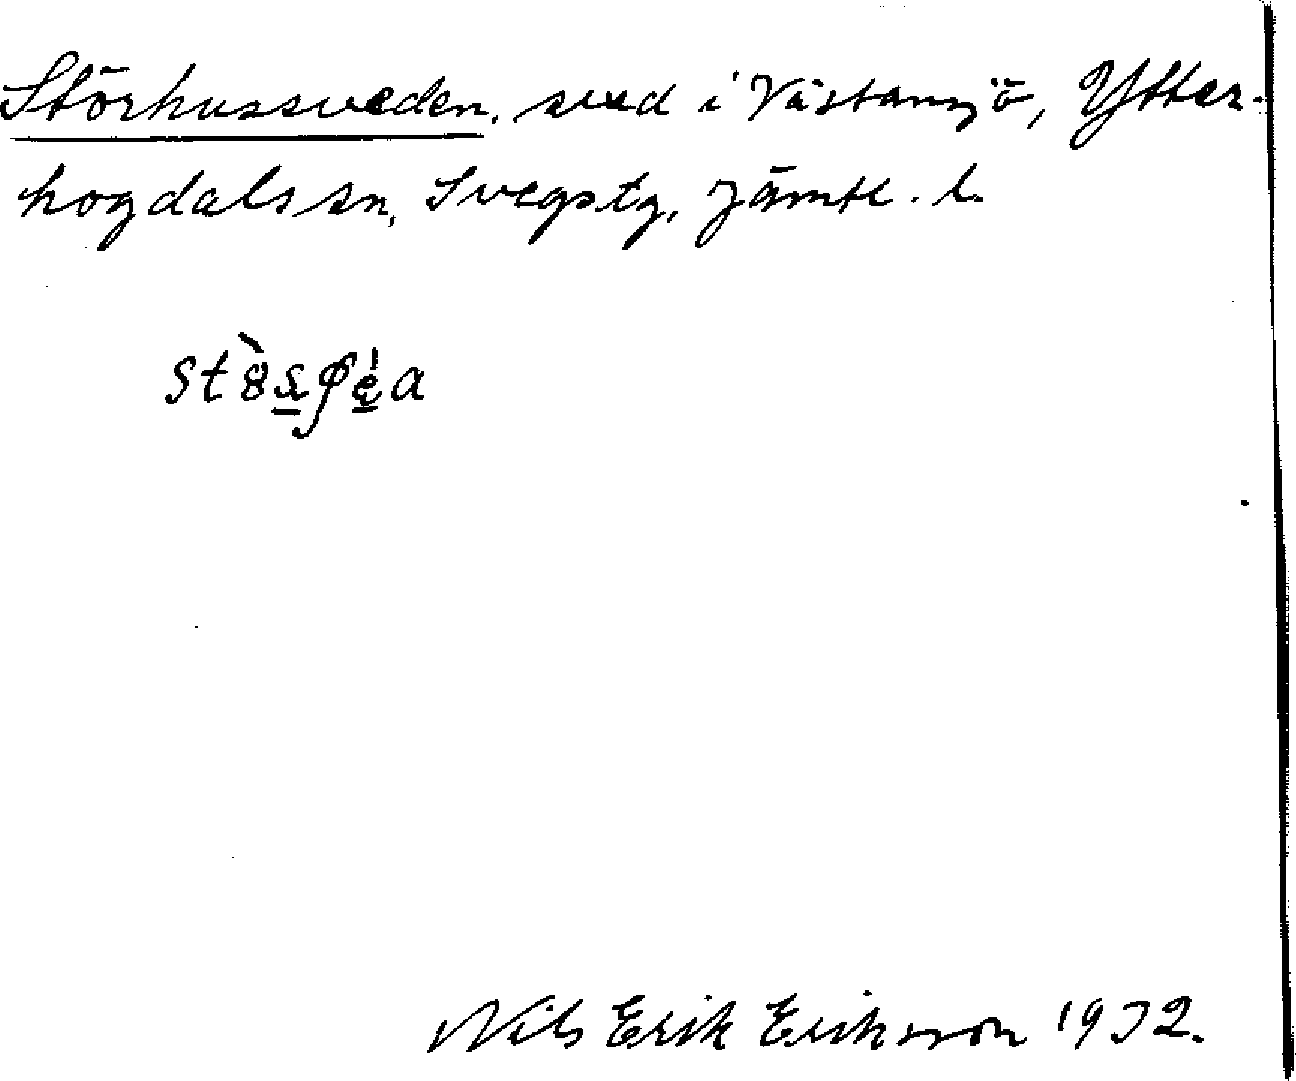 Störhussveden, sved i Västansjö, Ytter-
hogdals sn, Svegs tg, Jämtl. l.
Nils Erik Eriksson 1932.